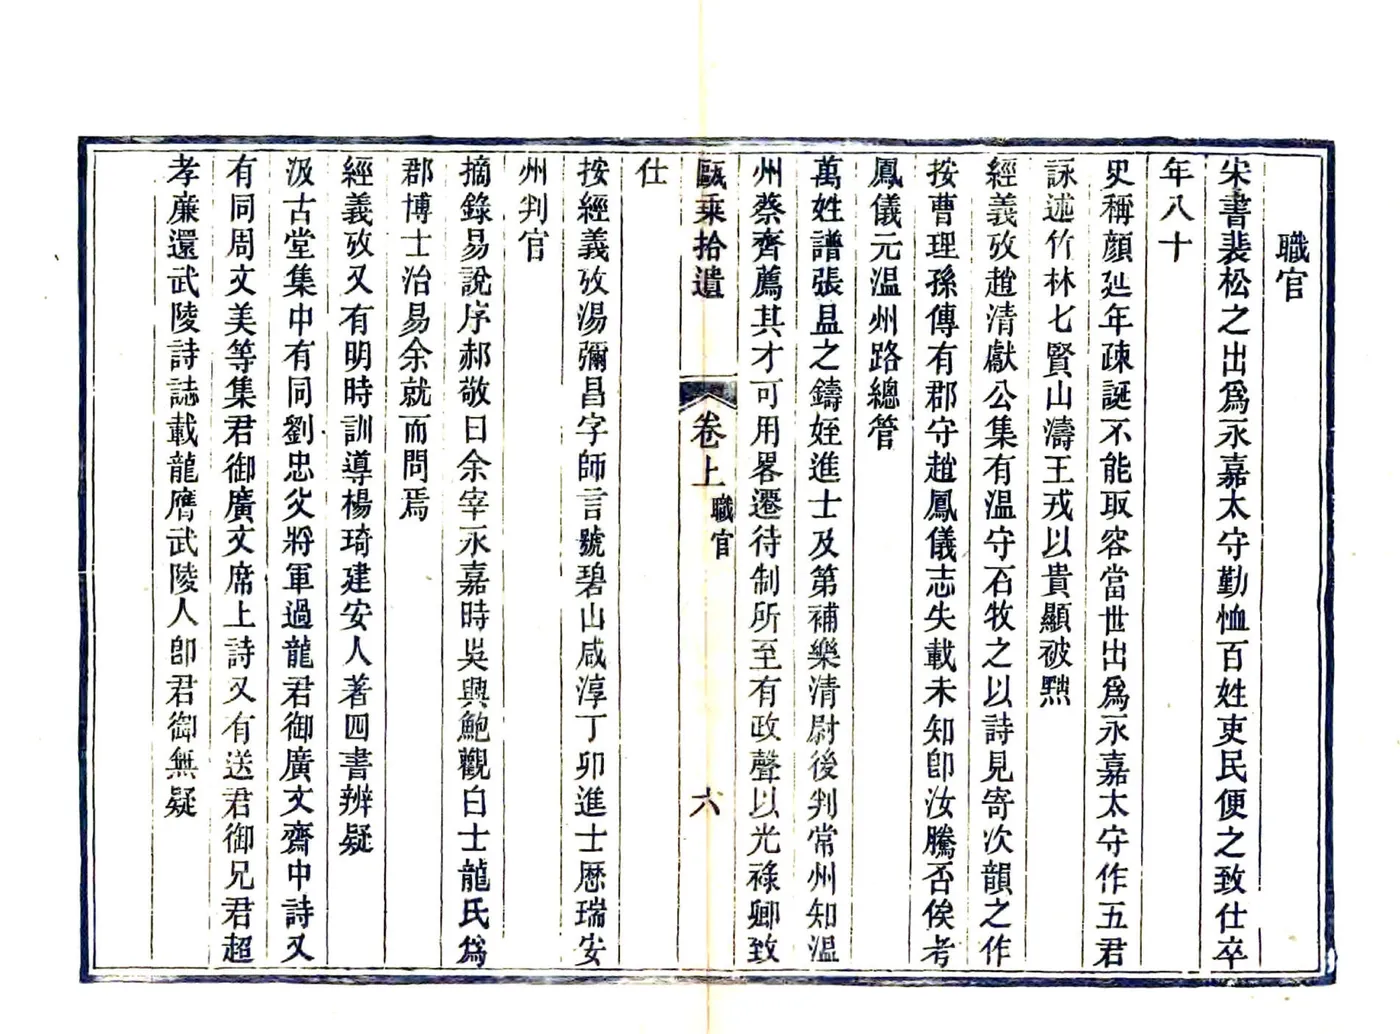 職官
宋書裴松之出爲永嘉太守勤恤百姓吏民便之致仕卒
年八十
史稱顔延年疎誕不能取容當世出爲永嘉太守作五君
詠述竹林七賢山濤王戎以貴顯被黜
經義攷趙清獻公集有温守石牧之以詩見寄次韻之作
按曹理孫傳有郡守趙鳳儀志失載未知卽汝騰否俟考
鳳儀元温州路總管
萬姓譜張昷之鑄姪進士及第補樂清尉後判常州知温
州蔡齊薦其才可用畧遷待制所至有政聲以光祿卿致
甌乘拾遺
卷上
職官
六
仕
按經義攷湯彌昌字師言號碧山咸淳丁卯進士厯瑞安
州判官
摘錄易說序郝敬曰余宰永嘉時吳興鮑觀白士龍氏爲
郡博士治易余就而問焉
經義攷又有明時訓導楊琦建安人著四書辨疑
汲古堂集中有同劉忠父將軍過龍君御廣文齋中詩又
有同周文美等集君御廣文席上詩又有送君御兄君超
孝廉還武陵詩誌載龍膺武陵人卽君御無疑